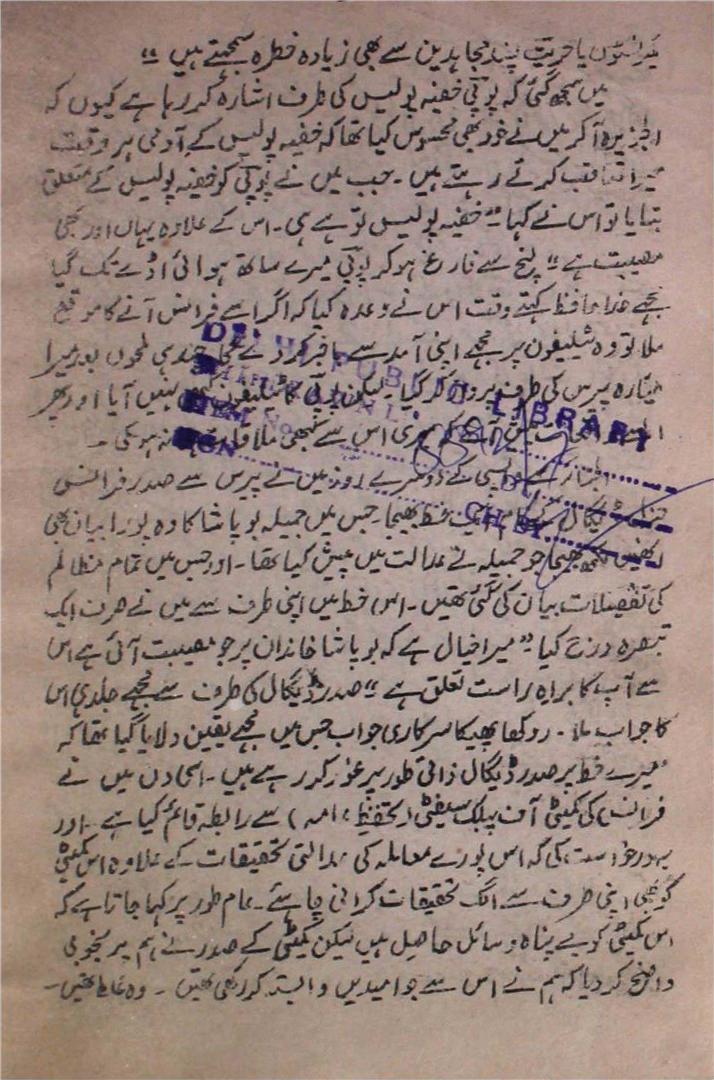 یا حریت پسند مجاہدین سے بھی زیادہ خطرہ سمجھتے ہیں ؛؛
میں سمجھ گئی کہ پوپی خفیہ پولیس کی طرف اشارہ کر رہا ہے کیوں کہ
الجزیرہ آ کر میں نے خود بھی محسوس کیا تھا کہ خفیہ پولیس کے آدمی ہر وقت
میرا تعاقب کرتے رہتے ہیں۔ جب میں نے پوپی کو خفیہ پولیس کے متعلق
بتایا تو اس نے کہا " خفیہ پولیس تو ہے ہی۔ اس کے علاوہ یہاں اور بھی
مصیبت ہے ؛؛ لنچ سے فارغ ہو کر پوپی میرے ساتھ ہوائی اڈے تک گیا
مجھے خدا حافظ کہتے وقت اس نے وعدہ کیا کہ اگر اسے فرانس آنے کا موقع
ملا تو وہ ٹیلیفون پر مجھے اپنی آمد سے باخبر کر دے گا چند ہی لمحوں بعد میرا
طیارہ پیرس کی طرف پرواز کر گیا۔ لیکن پوپی کا ٹیلیفون کبھی نہیں آیا اور پھر
میری اس سے کبھی ملاقات نہ ہو سکی۔
DELHI PUBLIC LIBRARY
واپسی کے دوسرے روز میں نے پیرس سے صدر فرانس
ڈیگال کے نام ایک خط بھیجا۔ جس میں جمیلہ بوپاشا کا وہ پورا بیان بھی
لکھ بھیجا جو جمیلہ نے عدالت میں پیش کیا تھا۔ اور جس میں تمام مظالم
کی تفصیلات بیان کی گئی تھیں۔ اس خط میں اپنی طرف سے میں نے صرف ایک
تبصرہ درج کیا " میرا خیال ہے کہ بوپاشا خاندان پر جو مصیبت آئی ہے اس
سے آپ کا براہ راست تعلق ہے ؛؛ صدر ڈیگال کی طرف سے مجھے جلد ہی اس
کا جواب ملا۔ روکھا پھیکا سرکاری جواب جس میں مجھے یقین دلایا گیا تھا کہ
میرے خط پر صدر ڈیگال ذاتی طور پر غور کر رہے ہیں۔ اسی دن میں نے
فرانس کی کمیٹی آف پبلک سیفٹی ( تحفیظ عامہ ) سے رابطہ قائم کیا ہے۔ اور
یہ درخواست کی کہ اس پورے معاملہ کی عدالتی تحقیقات کے علاوہ اس کمیٹی
کو بھی اپنی طرف سے الگ تحقیقات کرانی چاہئے۔ عام طور پر کہا جاتا ہے کہ
اس کمیٹی کو بے پناہ وسائل حاصل ہیں لیکن کمیٹی کے صدر نے ہم پر بخوبی
واضح کر دیا کہ ہم نے اس سے جو امیدیں وابستہ کر رکھی تھیں۔ وہ غلط تھیں۔